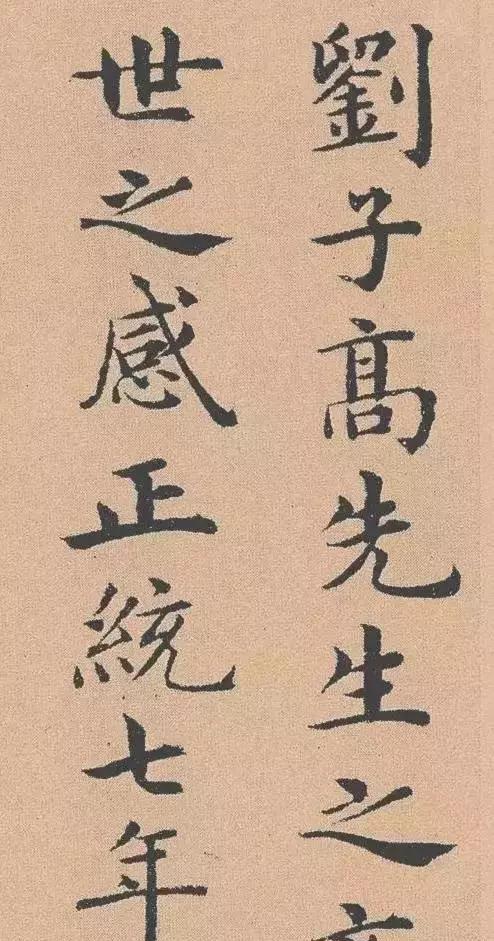 劉子髙先生之
世之感正統七年